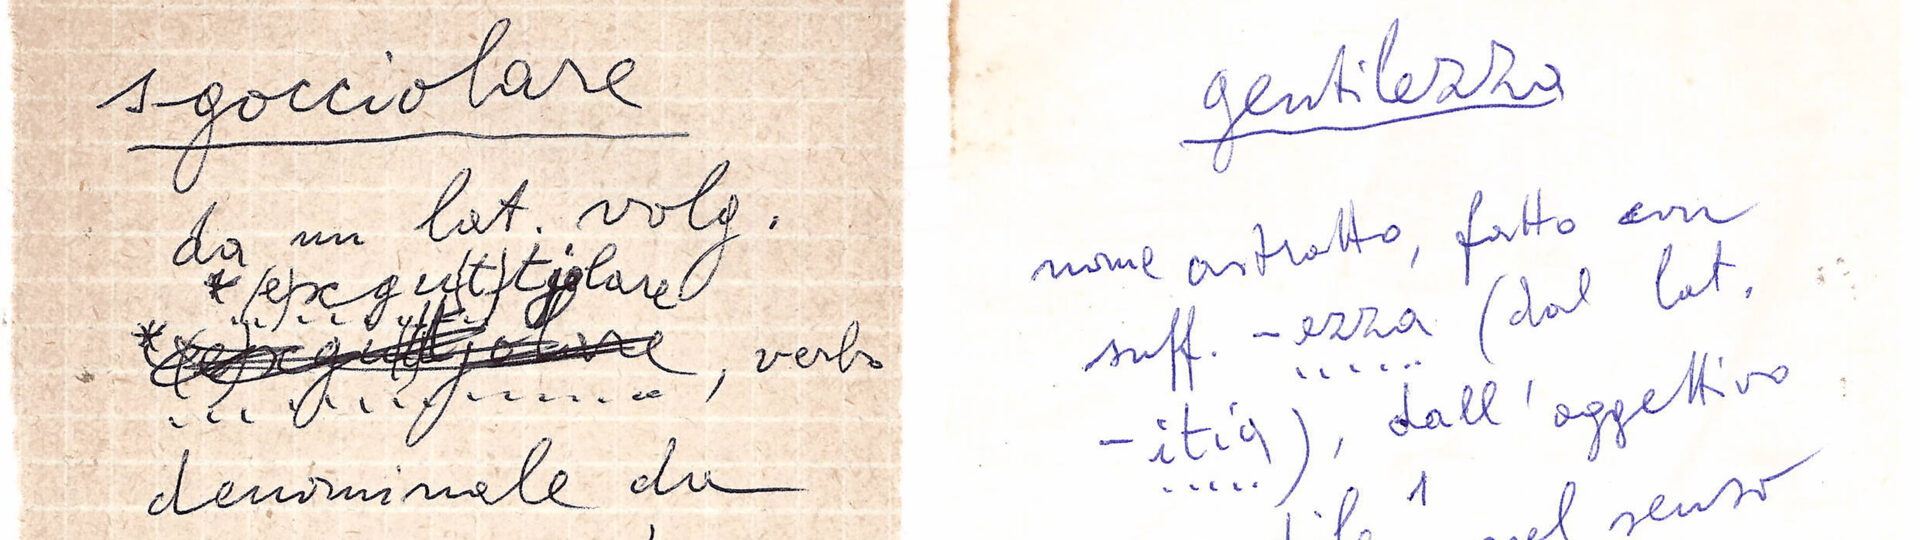 sgocciolare
da un lat. volg.
*(e)xgut(t)jolare
, verbo
denominale da
gentilezza
nome astratto, fatto con
suff. -ezza (dal lat.
-itia), dall'aggettivo
1 nel senso